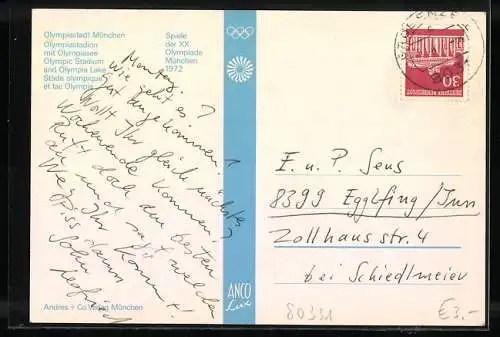 Olympiastadt München
Olympiastadion
mit Olympiasee
Olympic Stadium
and Olympia Lake
Stade olympique
et lac Olympia
Spiele
der XX.
Olympiade
München
1972
Montag.
Wie geht es?
Gut angekommen.
Wollt Ihr gleich nächstes
Wochenende kommen?
Ruft doch am besten
an und sagt
Wann Ihr kommt!
Biss dann
Andres + Co Verlag München
ANCO
Lux
30
DEUTSCHE BUNDESPOST
E. u. P. Sens
8399 Egglfing/Inn
Zollhausstr. 4
bei Schiedlmeier
80331
€3.-